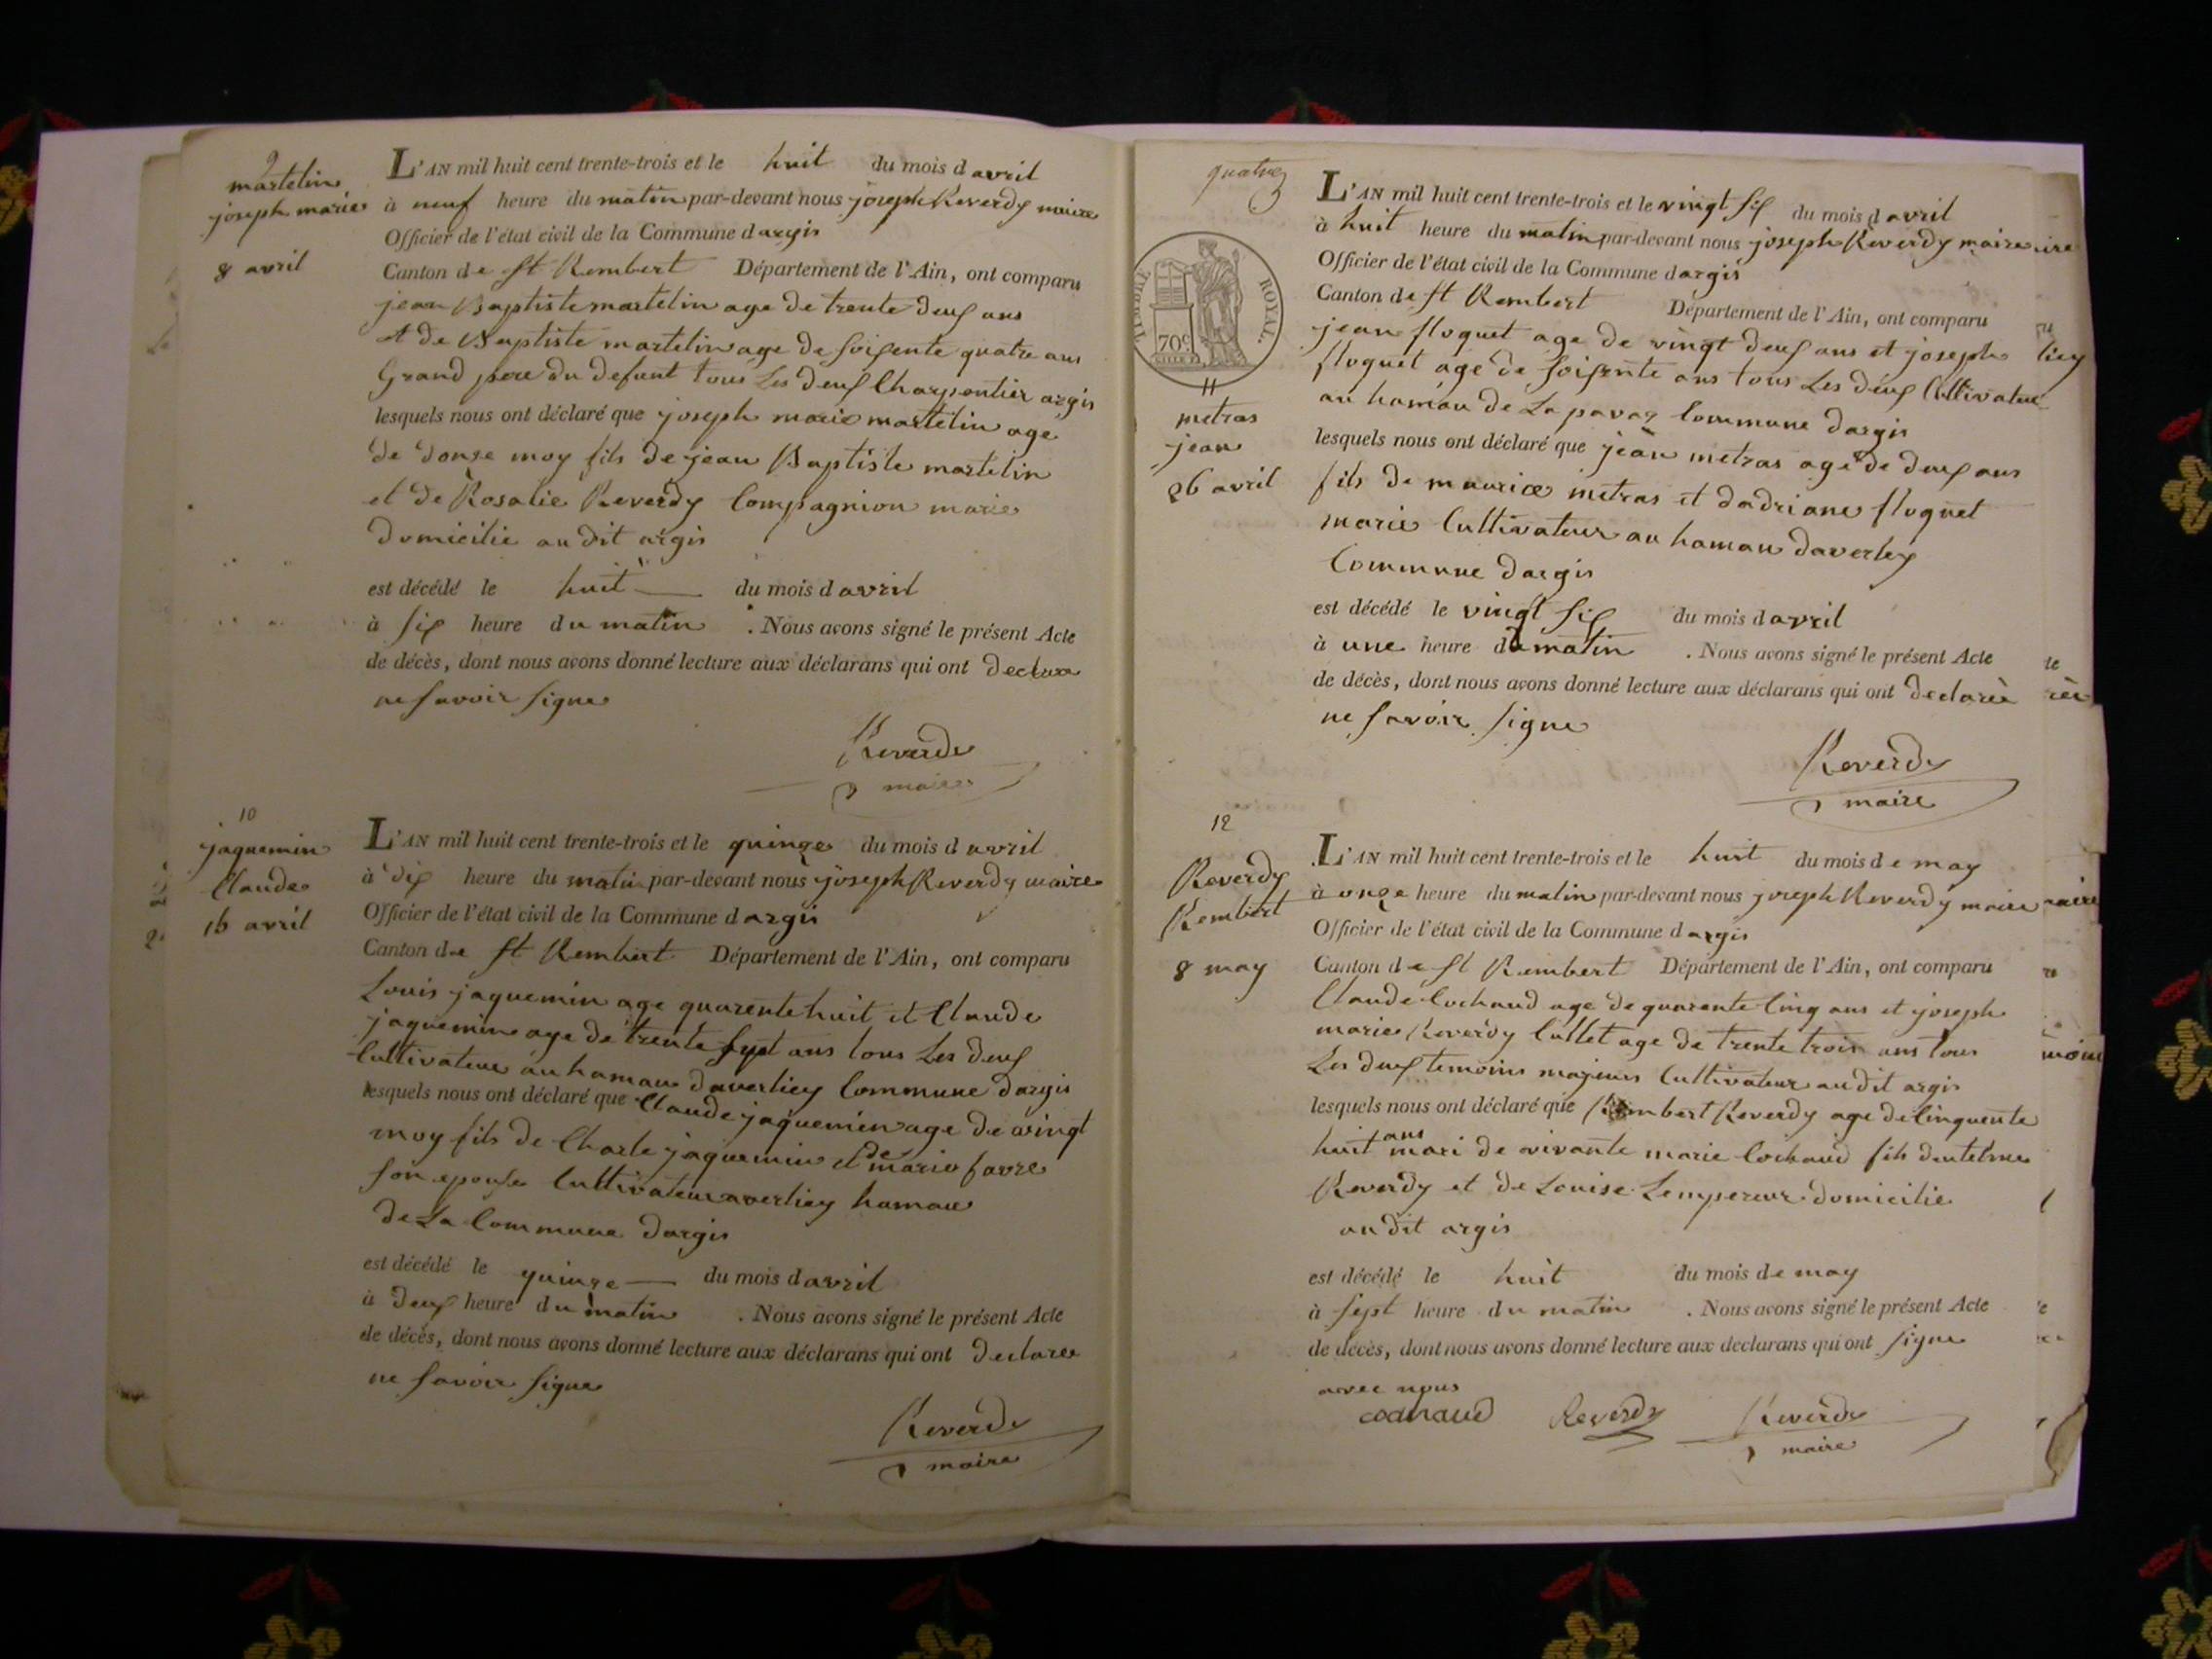 9
martelin
joseph marie
8 avril
L'AN mil huit cent trente-trois et le huit du mois d avril
à neuf heure du matin par-devant nous joseph Reverdy maire
Officier de l'état civil de la Commune d argis
Canton de St Rembert Département de l'Ain, ont comparu
jean Baptiste martelin age de trente deux ans
et de Baptiste martelin age de soixente quatre ans
Grand pere du defunt tous Les deux Charpentier argis
lesquels nous ont déclaré que joseph marie martelin age
de douze moy fils de jean Baptiste martelin
et de Rosalie Reverdy Compagnion marie
domicilie au dit argis
est décédé le huit du mois d avril
à six heure du matin . Nous avons signé le présent Acte
de décès, dont nous avons donné lecture aux déclarans qui ont declare
ne savoir signe
Reverdy
maire
10
jaquemin
Claude
15 avril
L'AN mil huit cent trente-trois et le quinze du mois d avril
à dix heure du matin par-devant nous joseph Reverdy maire
Officier de l'état civil de la Commune d argis
Canton de St Rembert Département de l'Ain, ont comparu
Louis jaquemin age quarente huit et Claude
jaquemin age de trente sept ans tous Les deux
Cultivateur au hamau daverliey Commune dargis
lesquels nous ont déclaré que Claude jaquemin age de vingt
moy fils de Charle jaquemin et de marie favre
son epouse Cultivateur averliey hamau
de La Commune dargis
est décédé le quinze du mois d avril
à deux heure du matin . Nous avons signé le présent Acte
de décès, dont nous avons donné lecture aux déclarans qui ont declare
ne savoir signe
Reverdy
maire
quatre
TIMBRE ROYAL.
70c
11
metras
jean
26 avril
L'AN mil huit cent trente-trois et le vingt six du mois d avril
à huit heure du matin par-devant nous joseph Reverdy maire
Officier de l'état civil de la Commune d argis
Canton de St Rembert Département de l'Ain, ont comparu
jean floquet age de vingt deux ans et joseph
floquet age de soixente ans tous Les deux Cultivateur
au hamau de La pavaz Commune dargis
lesquels nous ont déclaré que jean metras age de deux ans
fils de maurice metras et dadriane floquet
marie Cultivateur au hamau daverley
Commune dargis
est décédé le vingt six du mois d avril
à une heure du matin . Nous avons signé le présent Acte
de décès, dont nous avons donné lecture aux déclarans qui ont declarè
ne savoir signe
Reverdy
maire
12
Reverdy
Rembert
8 may
L'AN mil huit cent trente-trois et le huit du mois de may
à onze heure du matin par-devant nous joseph Reverdy maire
Officier de l'état civil de la Commune d argis
Canton de St Rembert Département de l'Ain, ont comparu
Claude Cochaud age de quarente Cinq ans et joseph
marie Reverdy Cullet age de trente trois ans tous
Les deux temoins majeurs Cultivateur audit argis
lesquels nous ont déclaré que Rembert Reverdy age de Cinquente
huit ans mari de vivante marie Cochaud fils dentelme
Reverdy et de Louise Lempereur domicilie
au dit argis
est décédé le huit du mois de may
à sept heure du matin . Nous avons signé le présent Acte
de décès, dont nous avons donné lecture aux declarans qui ont signe
avec nous
cochaud Reverdy Reverdy
maire